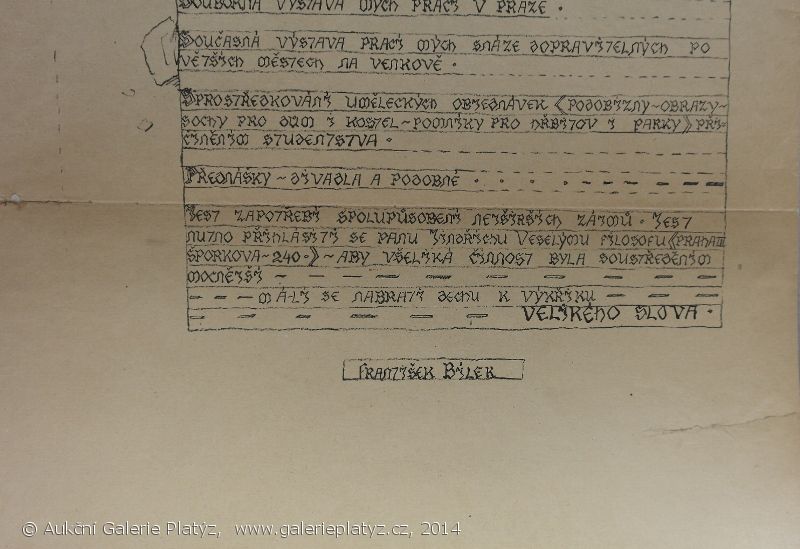 SOUBORNÁ VÝSTAVA MÝCH PRACÍ V PRAZE ·
SOUČASNÁ VÝSTAVA PRACÍ MÝCH SNÁZE DOPRAVITELNÝCH PO
VĚTŠÍCH MĚSTECH NA VENKOVĚ ·
SPROSTŘEDKOVÁNÍ UMĚLECKÝCH OBJEDNÁVEK (PODOBIZNY~OBRAZY~
SOCHY PRO DŮM I KOSTEL~POMNÍKY PRO HŘBITOV I PARKY) PŘI-
ČINĚNÍM STUDENTSTVA ·
PŘEDNÁŠKY~DIVADLA A PODOBNÉ
JEST ZAPOTŘEBÍ SPOLUPŮSOBENÍ NEJŠIRŠÍCH ZÁJMŮ · JEST
NUTNO PŘIHLÁSITI SE PANU JINDŘICHU VESELÝMU FILOSOFU (PRAHA III
ŠPORKOVA~240·) ~ ABY VŠELIKÁ ČINNOST BYLA SOUSTŘEDĚNÍM
MOCNĚJŠÍ
MÁ-LI SE NABRATI DECHU K VÝKŘIKU
VELIKÉHO SLOVA ·
FRANTIŠEK BÍLEK
© Aukční Galerie Platýz, www.galerieplatyz.cz, 2014